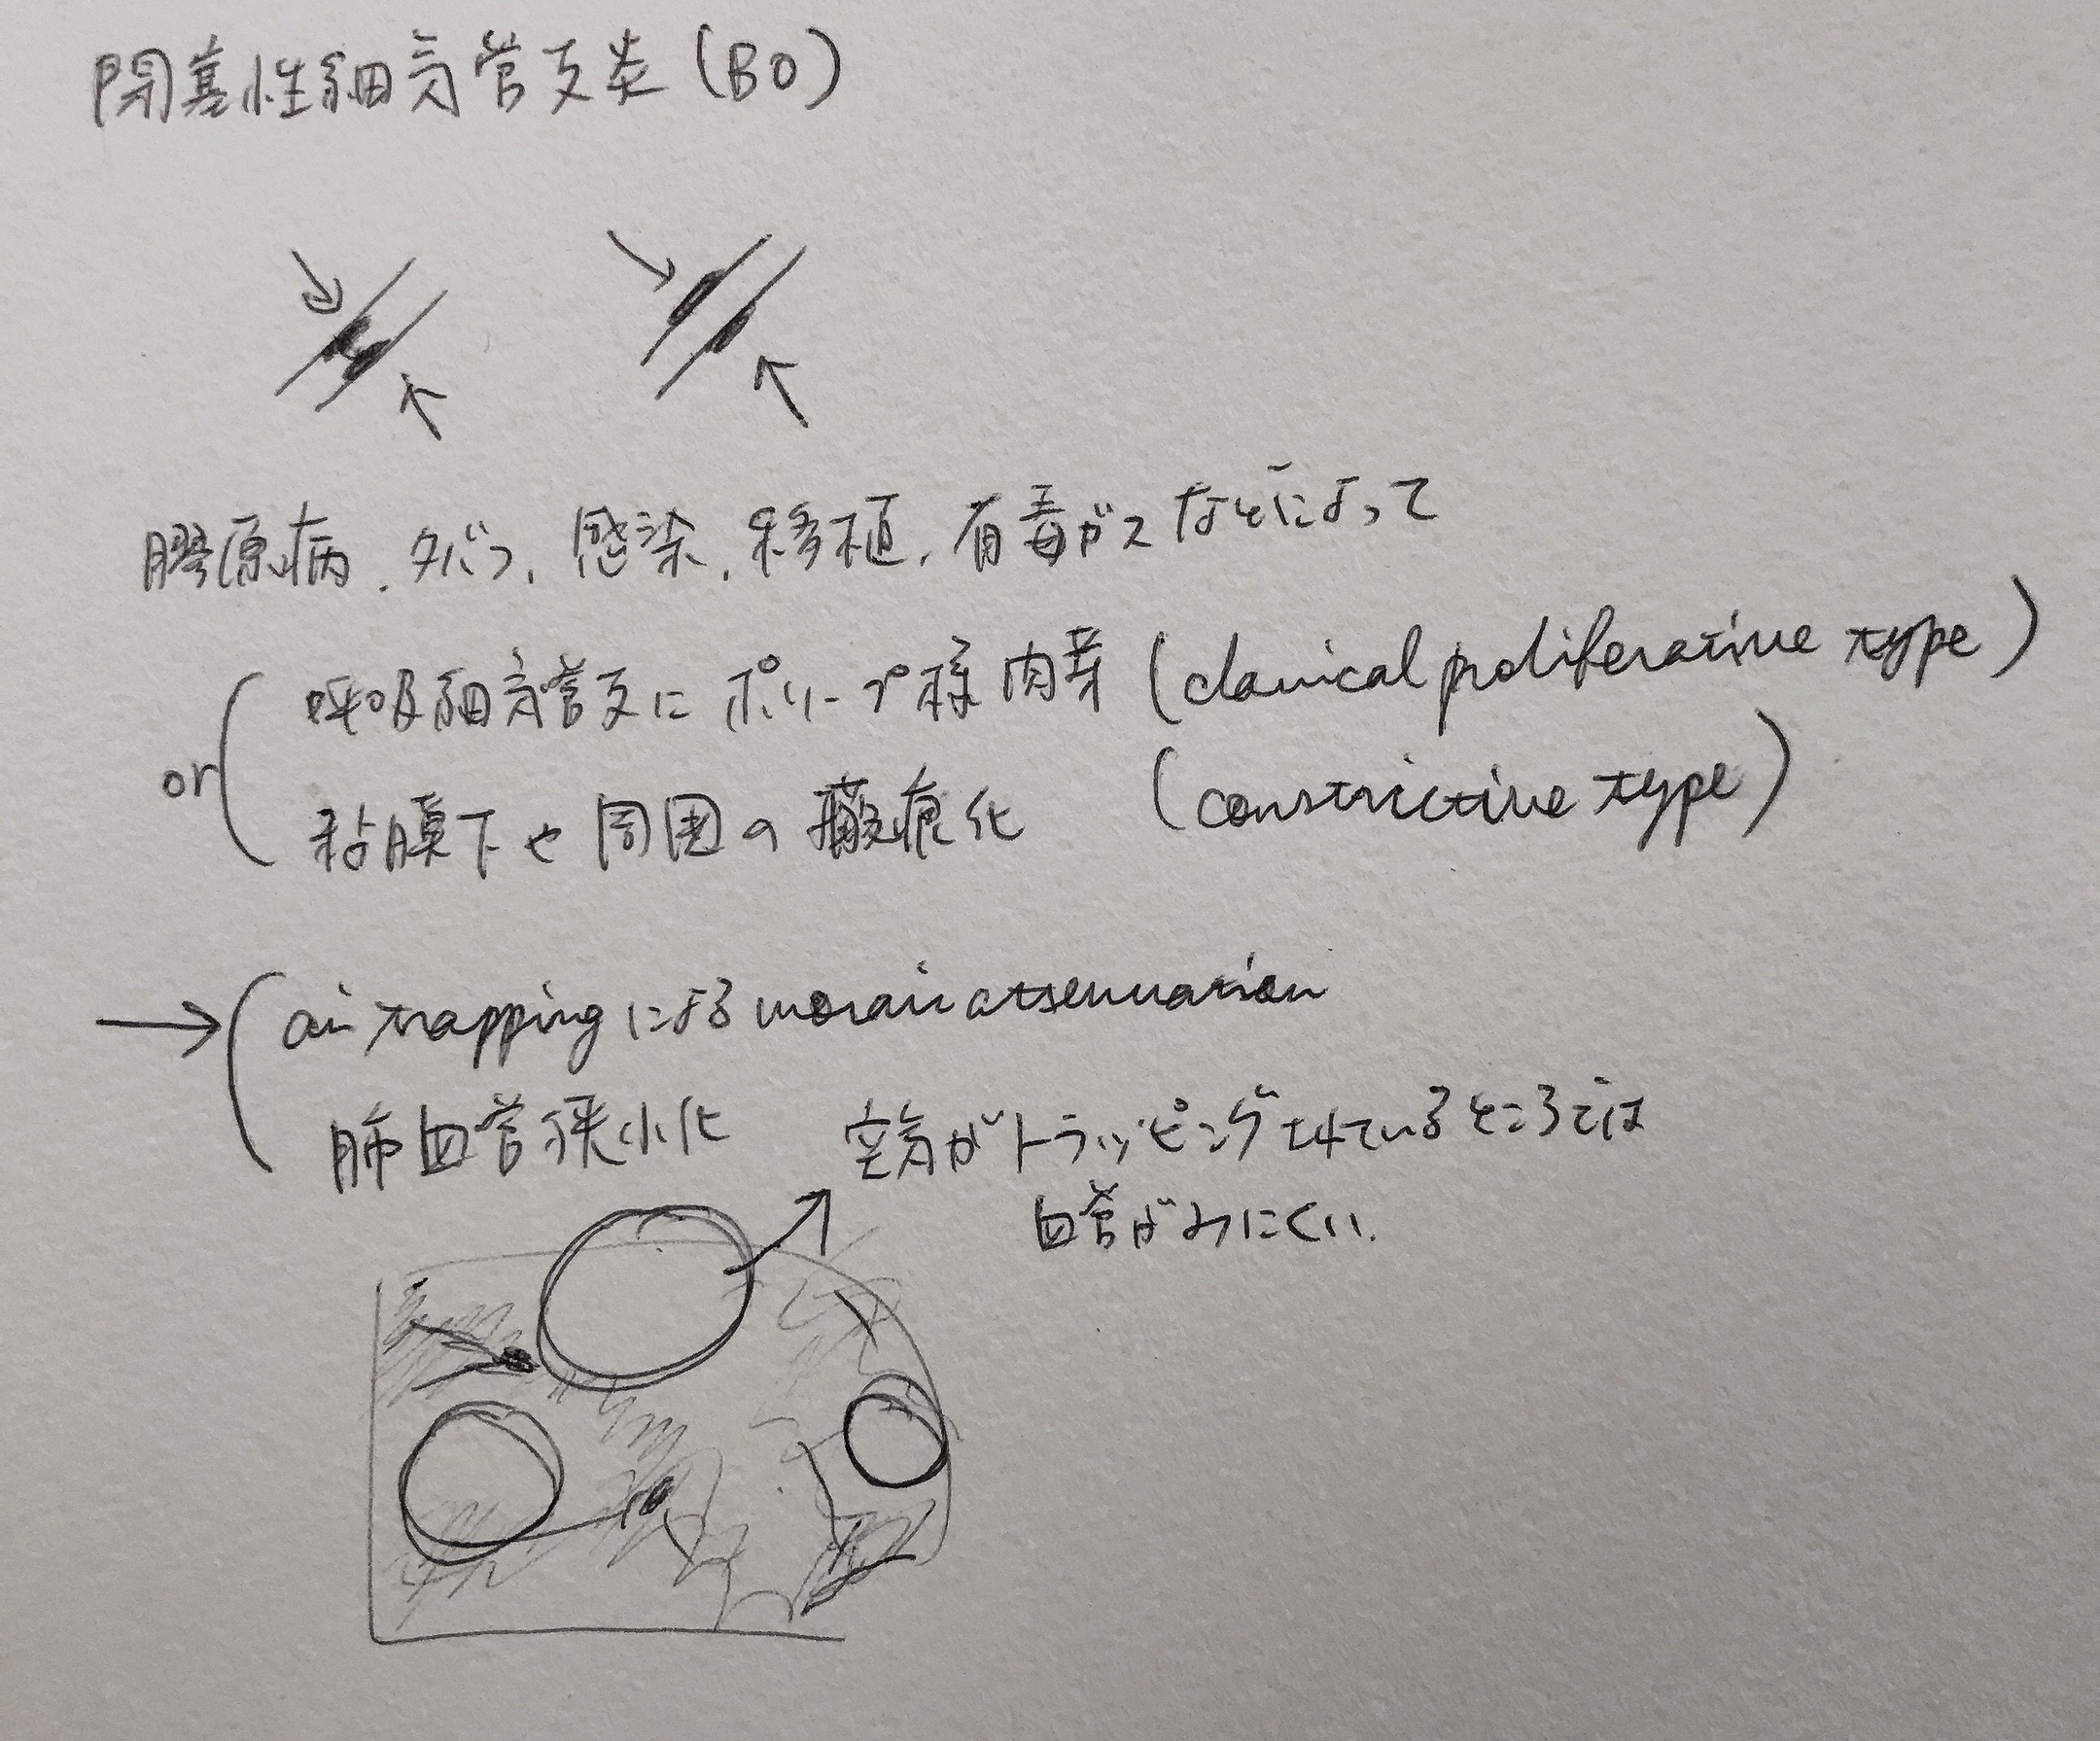 閉塞性細気管支炎(BO)
膠原病、タバコ、感染、移植、有毒ガスなどによって
呼吸細気管支にポリープ様肉芽 (classical proliferative type)
or
粘膜下や周囲の瘢痕化 (constrictive type)
→ air trappingによるmosaic attenuation
肺血管狭小化
空気がトラッピングされているところでは
血管がみにくい.